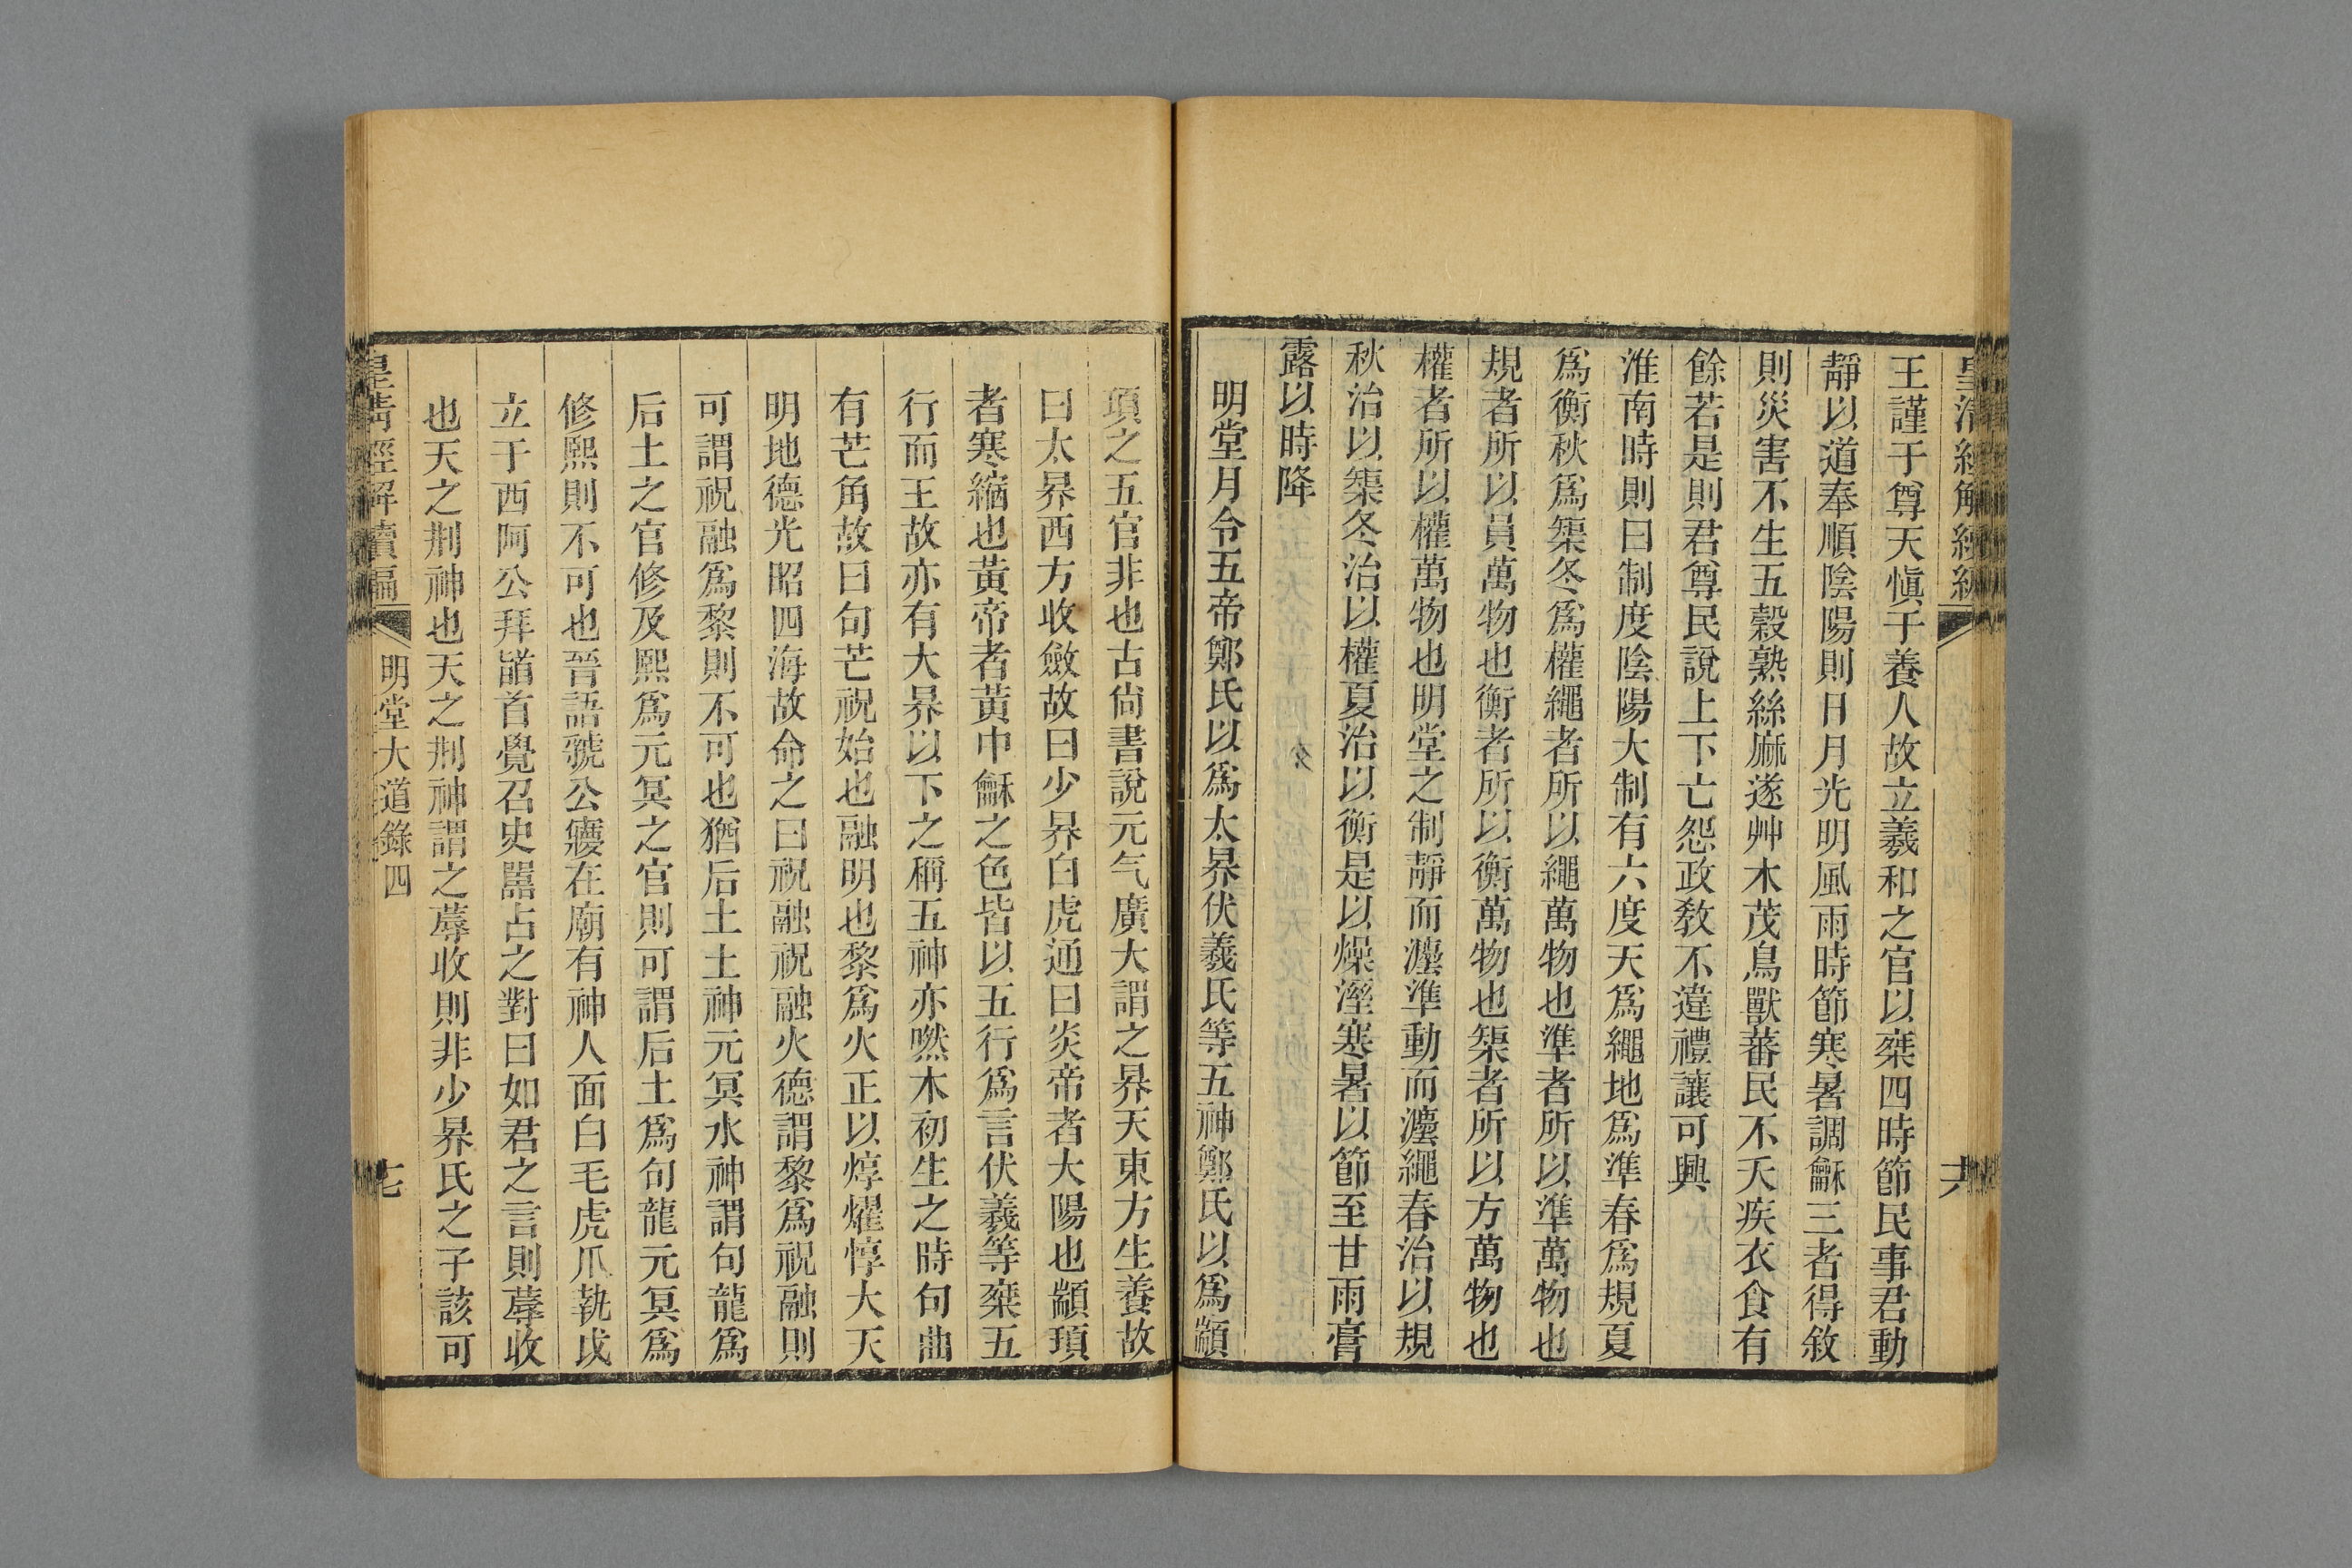 皇清經解續編
六
王謹于尊天愼于養人故立羲和之官以椉四時節民事君動
靜以道奉順陰陽則日月光明風雨時節寒暑調龢三者得敘
則災害不生五穀熟絲麻遂艸木茂鳥獸蕃民不夭疾衣食有
餘若是則君尊民說上下亡怨政敎不違禮讓可興
淮南時則曰制度陰陽大制有六度天爲繩地爲準春爲規夏
爲衡秋爲榘冬爲權繩者所以繩萬物也準者所以準萬物也
規者所以員萬物也衡者所以衡萬物也榘者所以方萬物也
權者所以權萬物也明堂之制靜而灋準動而灋繩春治以規
秋治以榘冬治以權夏治以衡是以燥溼寒暑以節至甘雨膏
露以時降
明堂月令五帝鄭氏以爲太昦伏羲氏等五神鄭氏以爲顓
頊之五官非也古尙書說元气廣大謂之昦天東方生養故
曰太昦西方收斂故曰少昦白虎通曰炎帝者大陽也顓頊
者寒縮也黃帝者黃中龢之色皆以五行爲言伏羲等椉五
行而王故亦有大昦以下之稱五神亦嘫木初生之時句曲
有芒角故曰句芒祝始也融明也黎爲火正以焞燿惇大天
明地德光昭四海故命之曰祝融祝融火德謂黎爲祝融則
可謂祝融爲黎則不可也猶后土土神元冥水神謂句龍爲
后土之官修及熙爲元冥之官則可謂后土爲句龍元冥爲
修熙則不可也晉語虢公㝱在廟有神人面白毛虎爪執戉
立于西阿公拜䭫首覺召史嚚占之對曰如君之言則蓐收
也天之㓝神也天之㓝神謂之蓐收則非少昦氏之子該可
皇清經解續編
明堂大道錄四
七